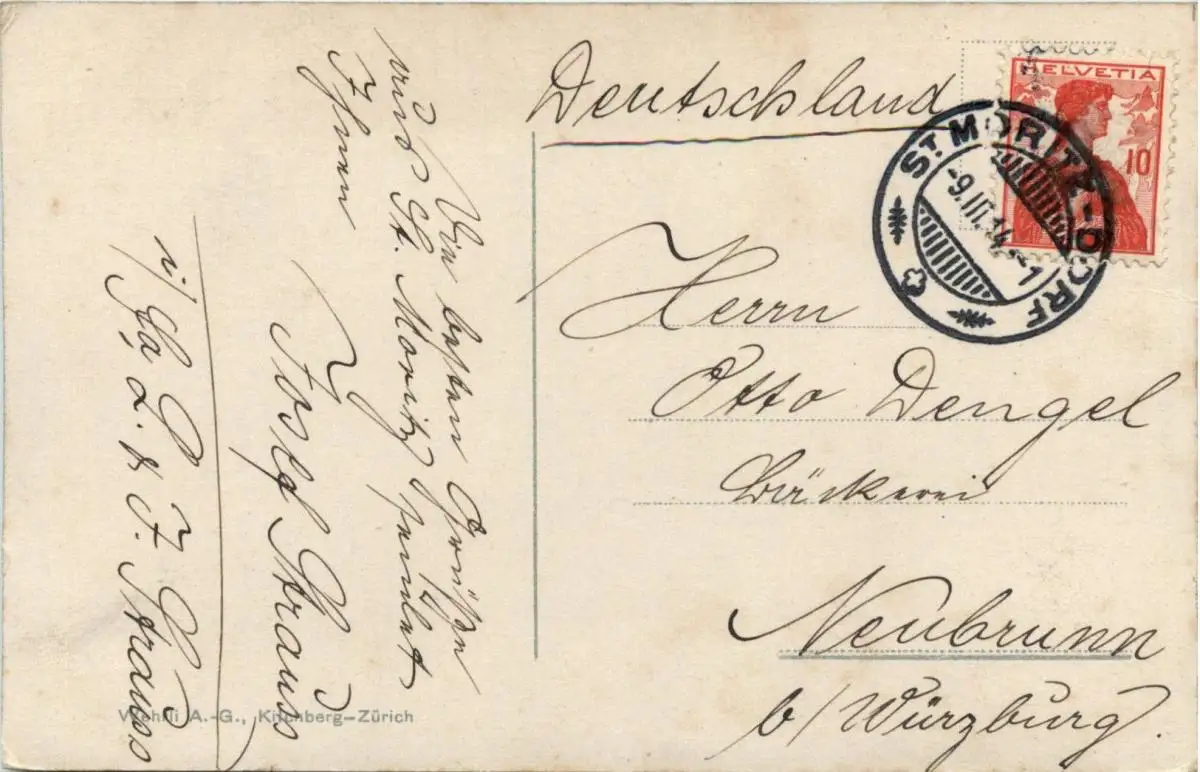 Die besten Grüßen
aus St. Moritz sendet
Ihnen
Josef Strauss
i/Fa L. & F. Strauss
Deutschland
HELVETIA
10
ST. MORITZ-DORF
-9.III.14.--1
Herrn
Otto Dengel
Bäckerei
Neubrunn
b/Würzburg.
Wehrli A.-G., Kilchberg-Zürich